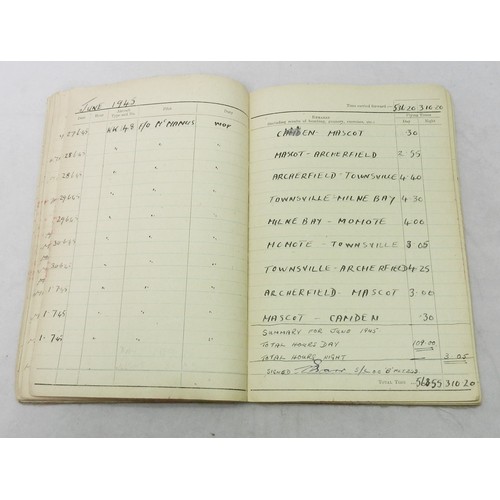 JUNE 1945
Time carried forward :— 516 20 · 310 20
Date Hour Aircraft Type and No. Pilot Duty
REMARKS
(including results of bombing, gunnery, exercises, etc.)
Flying Times
Day Night
27 6 45 KK 48 F/O McMANUS WOP CAMDEN - MASCOT ·30
28 6 45 " " " MASCOT - ARCHERFIELD 2 55
28 6 45 " " " ARCHERFIELD - TOWNSVILLE 4 40
29 6 45 " " " TOWNSVILLE - MILNE BAY 4 30
29 6 45 " " " MILNE BAY - MOMOTE 4·00
30 6 45 " " " MOMOTE - TOWNSVILLE 8·05
30 6 45 " " " TOWNSVILLE - ARCHERFIELD 4·25
1·7 45 " " " ARCHERFIELD - MASCOT 3·00
1·7 45 " " " MASCOT - CAMDEN ·30
SUMMARY FOR JUNE 1945
TOTAL HOURS DAY 109·00
TOTAL HOURS NIGHT — 3·05
SIGNED S/L
TOTAL TIME 310 20